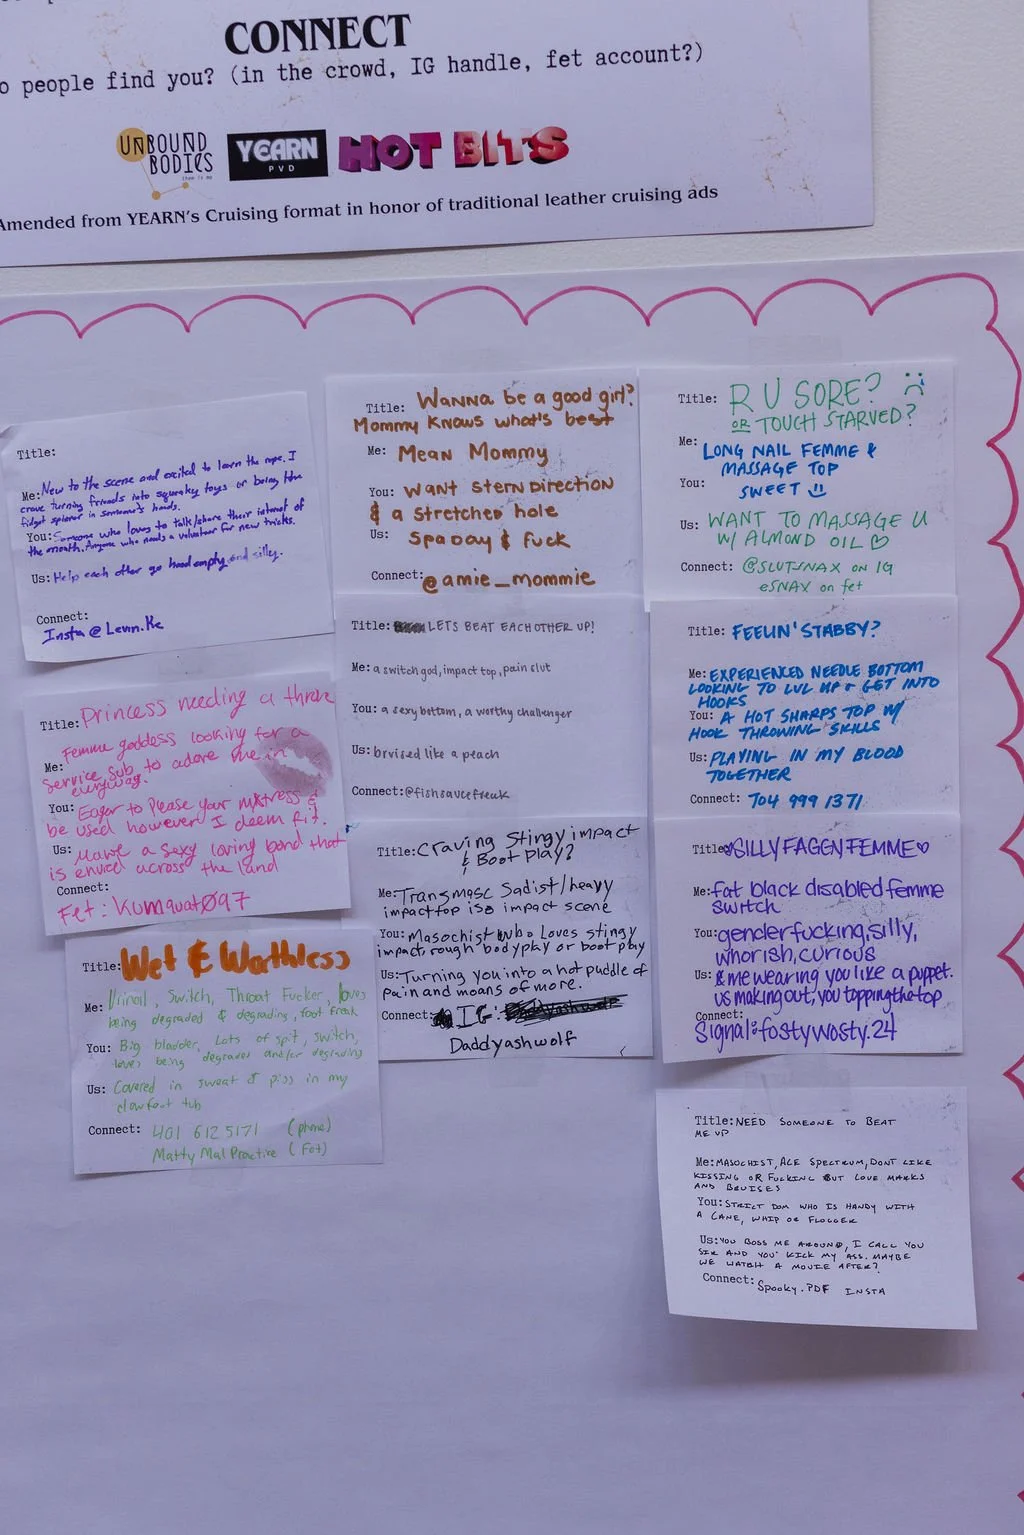 CONNECT
o people find you? (in the crowd, IG handle, fet account?)
UNBOUND
BODIES
YEARN
PVD
HOT BITS
Amended from YEARN's Cruising format in honor of traditional leather cruising ads
Title:
Me: New to the scene and excited to learn the rope. I
crave turning friends into squeaky toys or being the
fidget spinner in someone's hands.
You: Someone who loves to talk/share their interest of
the month. Anyone who needs a volunteer for new tricks.
Us: Help each other go head empty and silly.
Connect:
Insta @ Levin.Ke
Title: Princess needing a throne
Me: Femme goddess looking for a
service sub to adore me in
everyway.
You: Eager to please your mistress &
be used however I deem fit.
Us: Have a sexy loving bond that
is envied across the land
Connect:
Fet: Kumquat097
Title: Wet & Worthless
Me: Switch, Throat Fucker, loves
being degraded & degrading, foot freak
You: Big bladder, Lots of spit, switch,
loves being degraded and/or degrading
Us: Covered in sweat & piss in my
clawfoot tub
Connect: 401 612 5171 (phone)
Matty MalPractice (Fet)
Title: Wanna be a good girl?
Mommy Knows what's best
Me: Mean Mommy
You: want stern direction
& a stretched hole
Us: Spa Day & fuck
Connect: @amie_mommie
Title: LETS BEAT EACHOTHER UP!
Me: a switch god, impact top, pain slut
You: a sexy bottom, a worthy challenger
Us: bruised like a peach
Connect: @fishsaucefreak
Title: Craving Stingy impact
& Boot play?
Me: Transmasc Sadist/heavy
impact top iso impact scene
You: Masochist who Loves stingy
impact, rough bodyplay or boot play
Us: Turning you into a hot puddle of
pain and moans of more.
Connect: IG:
Daddyashwolf
Title: R U SORE?
OR TOUCH STARVED?
Me: LONG NAIL FEMME &
MASSAGE TOP
You: SWEET
Us: WANT TO MASSAGE U
W/ ALMOND OIL ♡
Connect: @SLUTSNAX on IG
eSNAX on fet
Title: FEELIN' STABBY?
Me: EXPERIENCED NEEDLE BOTTOM
LOOKING TO LVL UP & GET INTO
HOOKS
You: A HOT SHARPS TOP W/
HOOK THROWING SKILLS
Us: PLAYING IN MY BLOOD
TOGETHER
Connect: 704 999 1371
Title: ♡SILLY FAGGY FEMME♡
Me: fat black disabled femme
switch
You: genderfucking, silly,
whorish, curious
Us: & me wearing you like a puppet.
us making out, you topping the top
Connect:
Signal: fostywosty.24
Title: NEED SOMEONE TO BEAT
ME UP
Me: MASOCHIST, ACE SPECTRUM, DONT LIKE
KISSING OR FUCKING BUT LOVE MARKS
AND BRUISES
You: STRICT DOM WHO IS HANDY WITH
A CANE, WHIP OR FLOGGER
Us: YOU BOSS ME AROUND, I CALL YOU
SIR AND YOU KICK MY ASS. MAYBE
WE WATCH A MOVIE AFTER?
Connect: Spooky.PDF INSTA